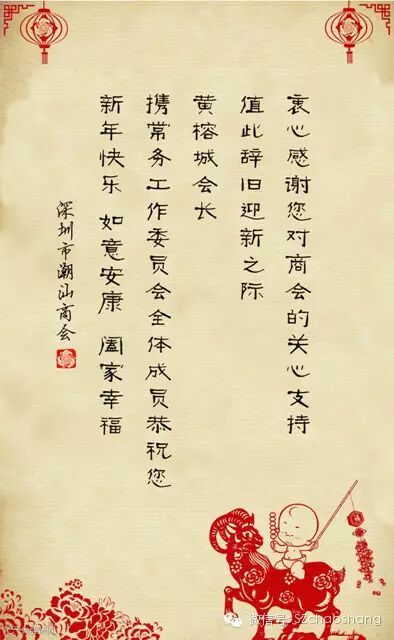 衷心感谢您对商会的关心支持
值此辞旧迎新之际
黄榕城会长
携常务工作委员会全体成员恭祝您
新年快乐 如意安康 阖家幸福
深圳市潮汕商会
微信号: SZchaoshang